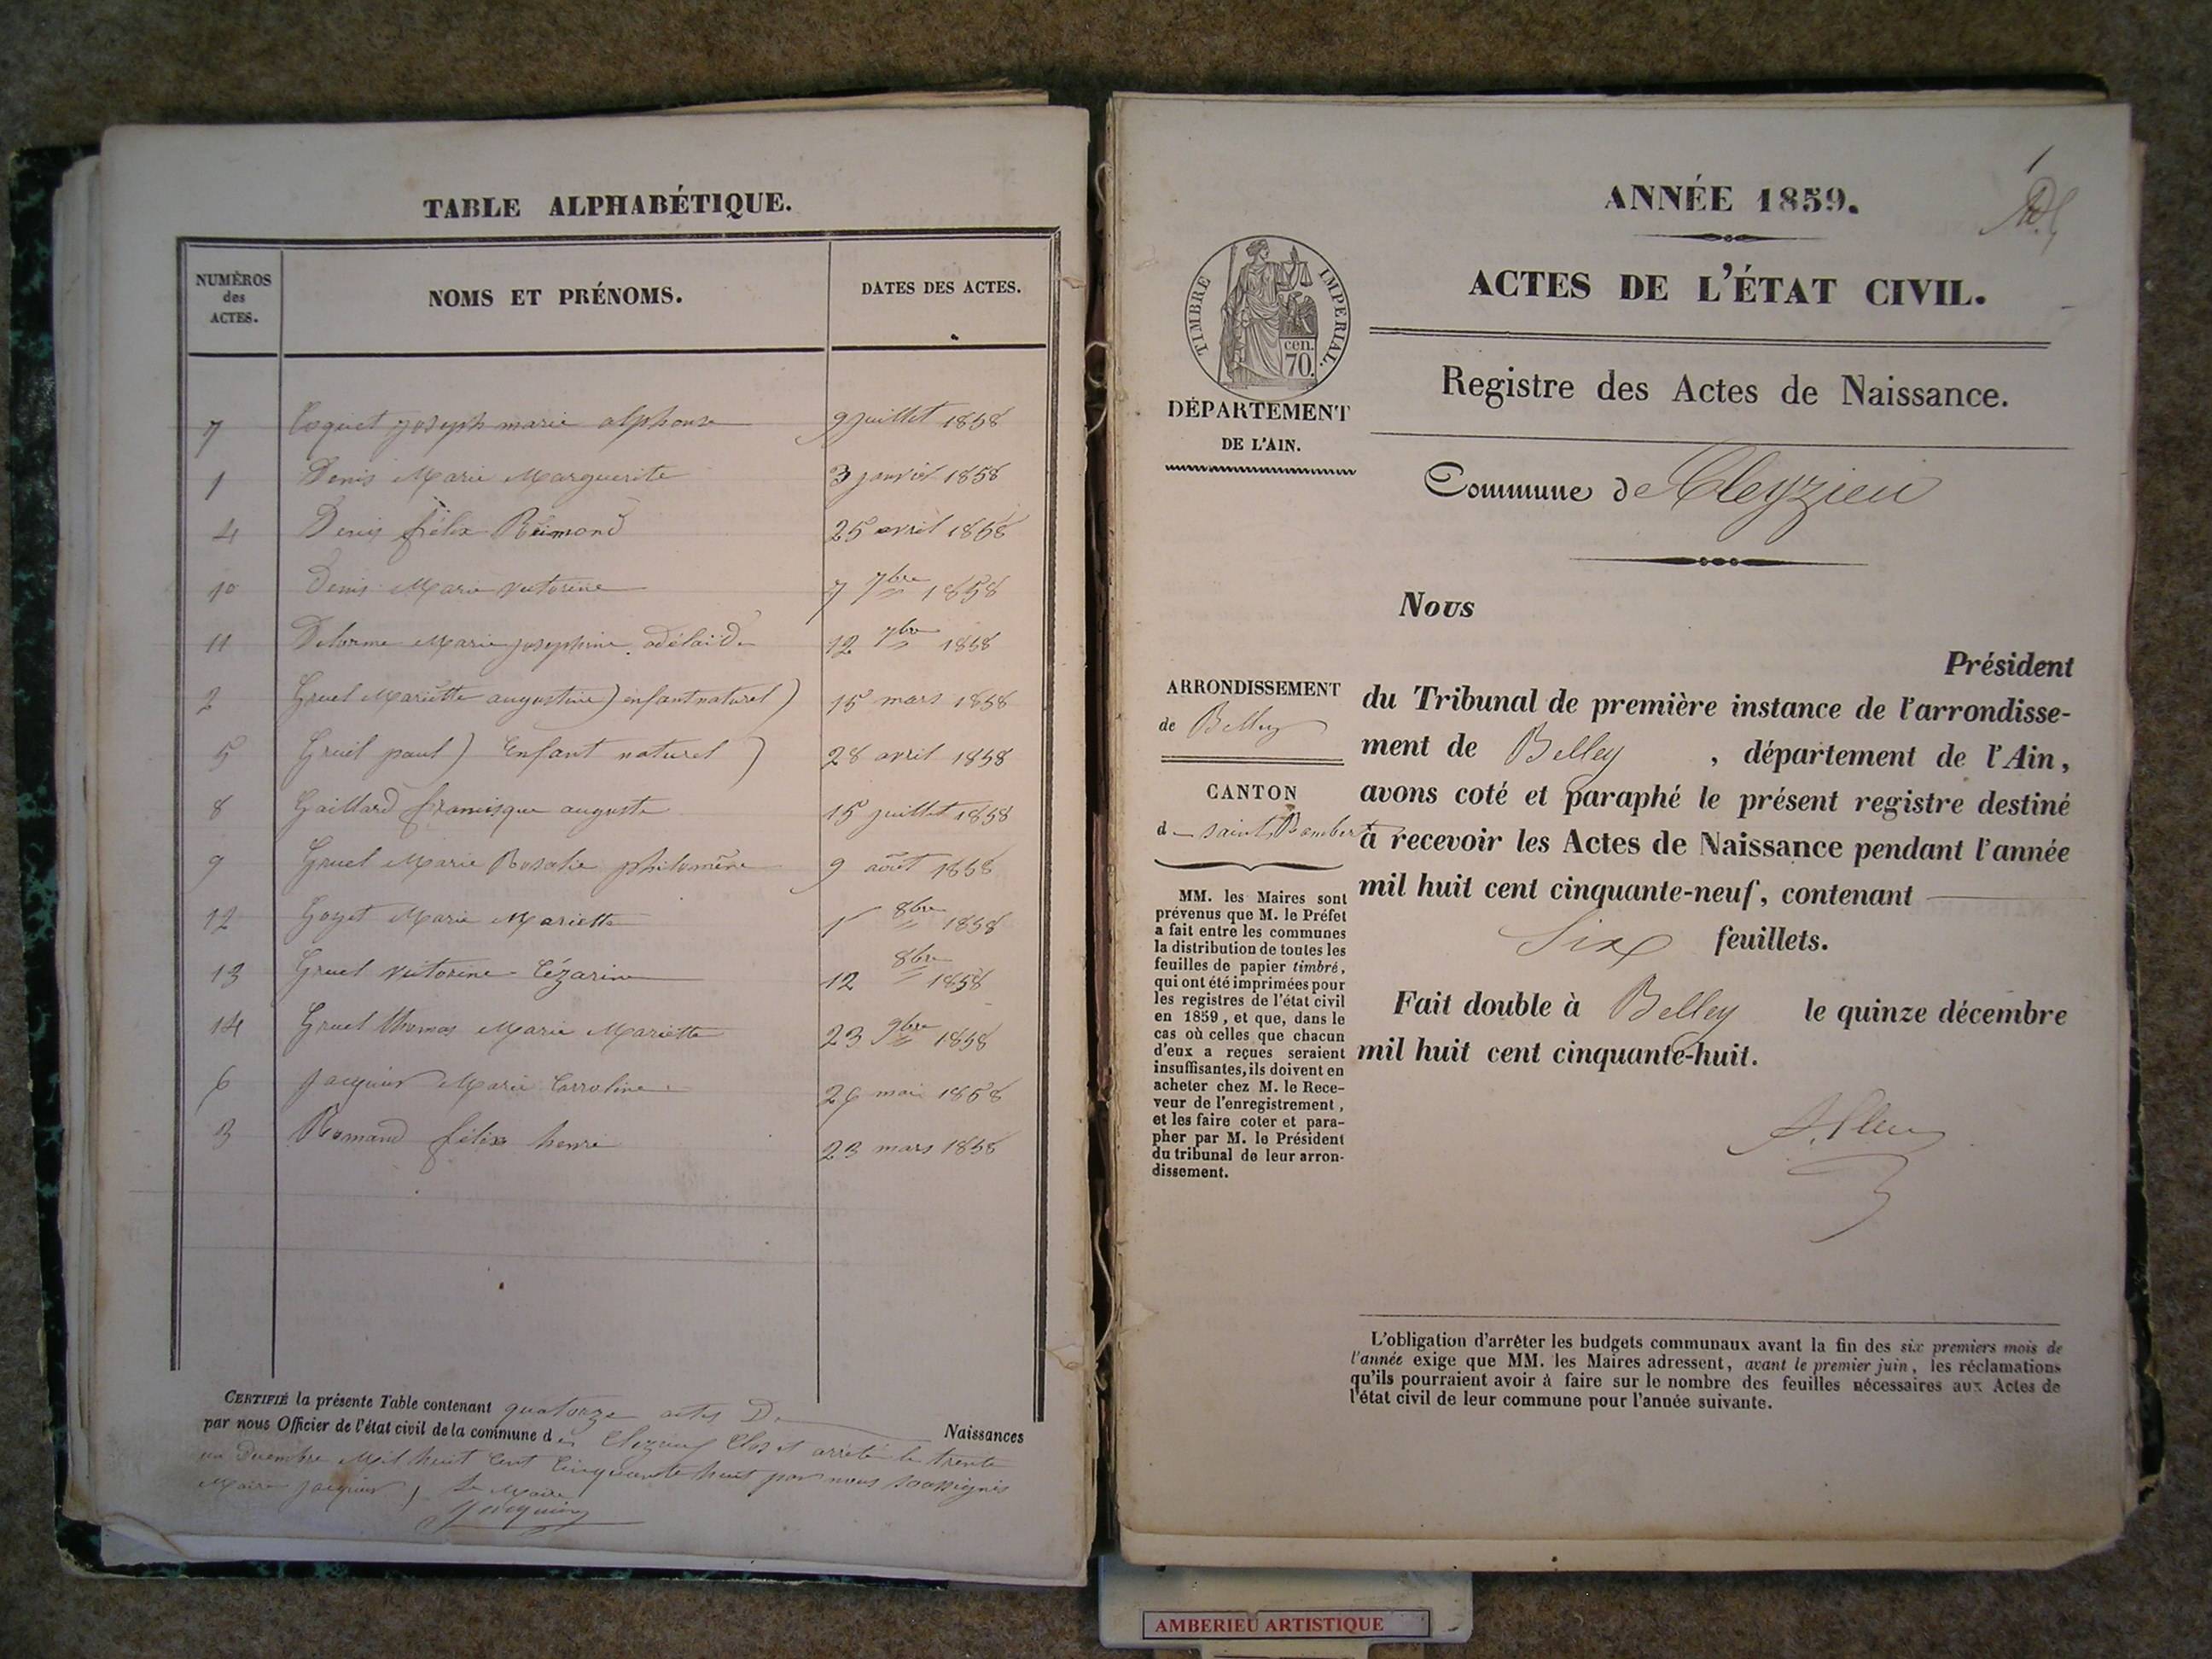 TABLE ALPHABÉTIQUE.
NUMÉROS des ACTES. NOMS ET PRÉNOMS. DATES DES ACTES.
7 Coquet joseph marie alphonse 9 juillet 1858
1 Denis Marie Marguerite 3 janvier 1858
4 Denis félix Reimond 25 avril 1858
10 Denis Marie victorine 7 7bre 1858
11 Delorme Marie josephine adélaïde 12 7bre 1858
2 Gruel Mariette augustine) enfant naturel) 15 mars 1858
5 Gruel paul) Enfant naturel) 28 avril 1858
8 Gaillard francisque auguste 15 juillet 1858
9 Gruel Marie Rosalie philomène 9 août 1858
12 Goyet Marie Mariette 1 8bre 1858
13 Gruel victorine Cézarine 12 8bre 1858
14 Gruel thomas Marie Mariette 23 9bre 1858
6 jacquier Marie Carroline 26 mai 1858
3 Romand félix henri 23 mars 1858
CERTIFIÉ la présente Table contenant quatorze actes De Naissances
par nous Officier de l'état civil de la commune de Cleyzieu Clos et arrêté le trente
un Decembre Mil huit Cent Cinquante huit par nous soussignés
Maire jacquier, Le Maire
Jacquier
1
ANNÉE 1859.
ACTES DE L'ÉTAT CIVIL.
TIMBRE IMPERIAL.
cen.
70.
Registre des Actes de Naissance.
DÉPARTEMENT
DE L'AIN.
Commune de Cleyzieu
Nous
Président
du Tribunal de première instance de l'arrondisse-
ment de Belley, département de l'Ain,
avons coté et paraphé le présent registre destiné
à recevoir les Actes de Naissance pendant l'année
mil huit cent cinquante-neuf, contenant
Six feuillets.
Fait double à Belley le quinze décembre
mil huit cent cinquante-huit.
ARRONDISSEMENT
de Belley
CANTON
de saint Rambert
MM. les Maires sont
prévenus que M. le Préfet
a fait entre les communes
la distribution de toutes les
feuilles de papier timbré,
qui ont été imprimées pour
les registres de l'état civil
en 1859, et que, dans le
cas où celles que chacun
d'eux a reçues seraient
insuffisantes, ils doivent en
acheter chez M. le Rece-
veur de l'enregistrement,
et les faire coter et para-
pher par M. le Président
du tribunal de leur arron-
dissement.
L'obligation d'arrêter les budgets communaux avant la fin des six premiers mois de
l'année exige que MM. les Maires adressent, avant le premier juin, les réclamations
qu'ils pourraient avoir à faire sur le nombre des feuilles nécessaires aux Actes de
l'état civil de leur commune pour l'année suivante.
AMBERIEU ARTISTIQUE